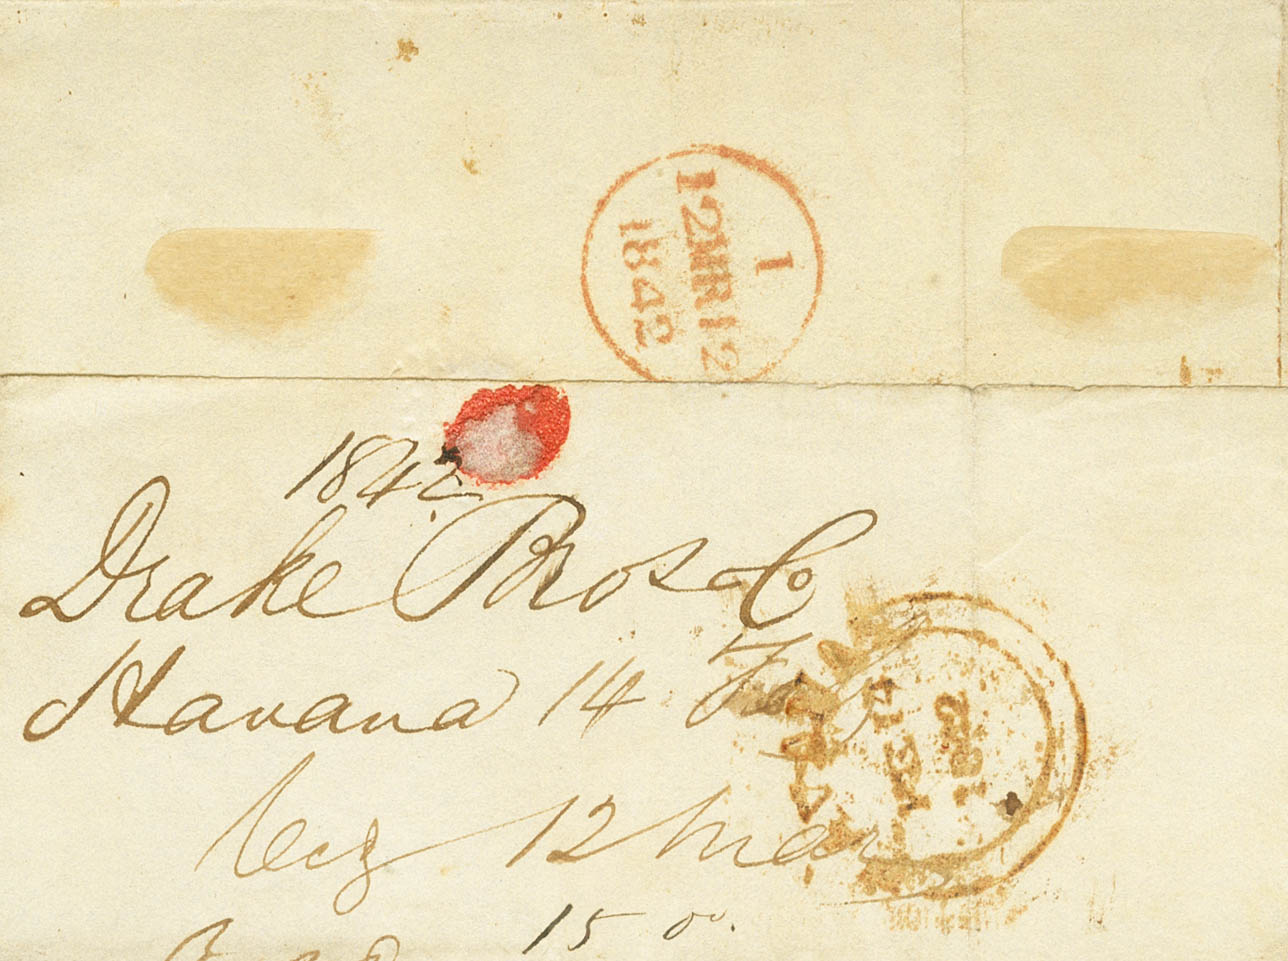 1
12MR12
1842
1842
Drake Bros & Co
Havana 14
12 Mar
15 00.